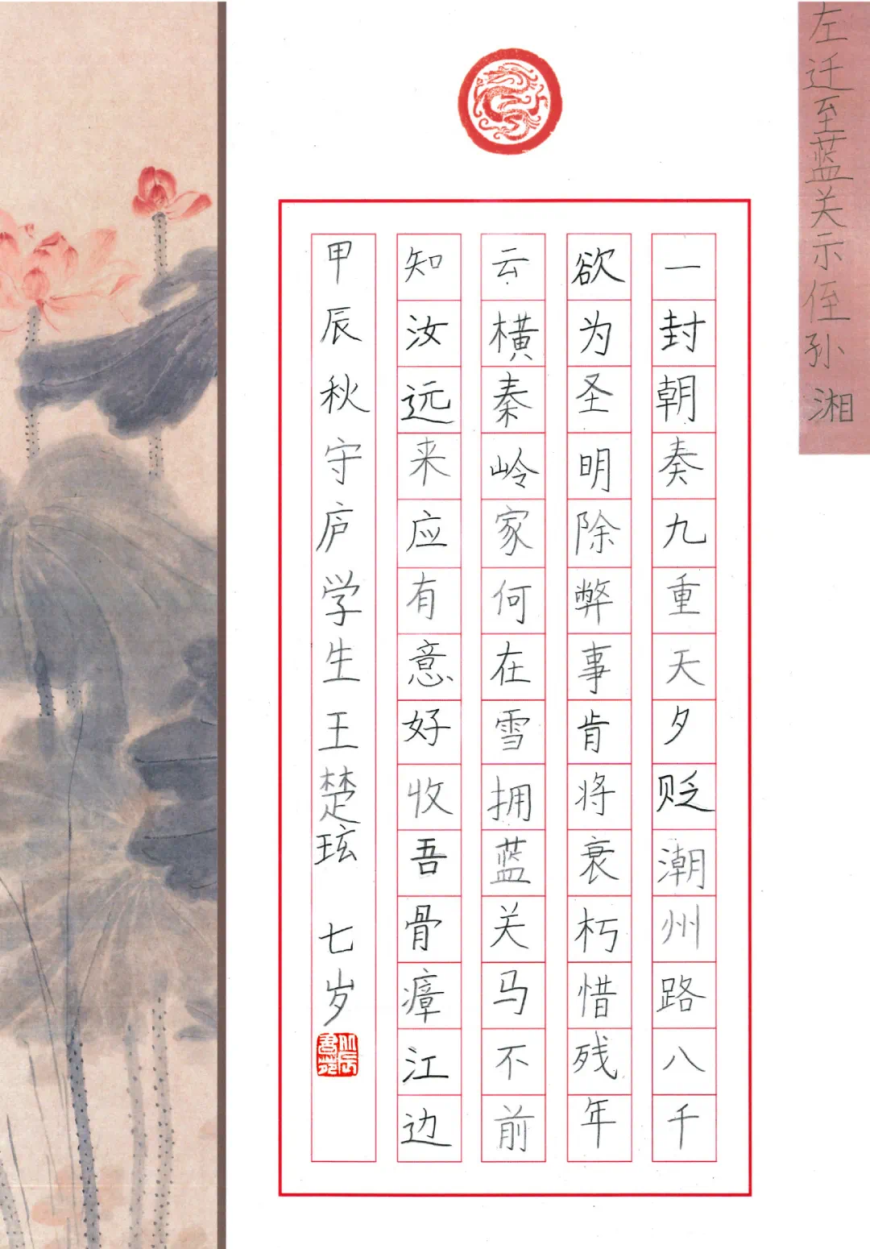 左迁至蓝关示侄孙湘
一封朝奏九重天夕贬潮州路八千
欲为圣明除弊事肯将衰朽惜残年
云横秦岭家何在雪拥蓝关马不前
知汝远来应有意好收吾骨瘴江边
甲辰秋守庐学生王楚玹 七岁